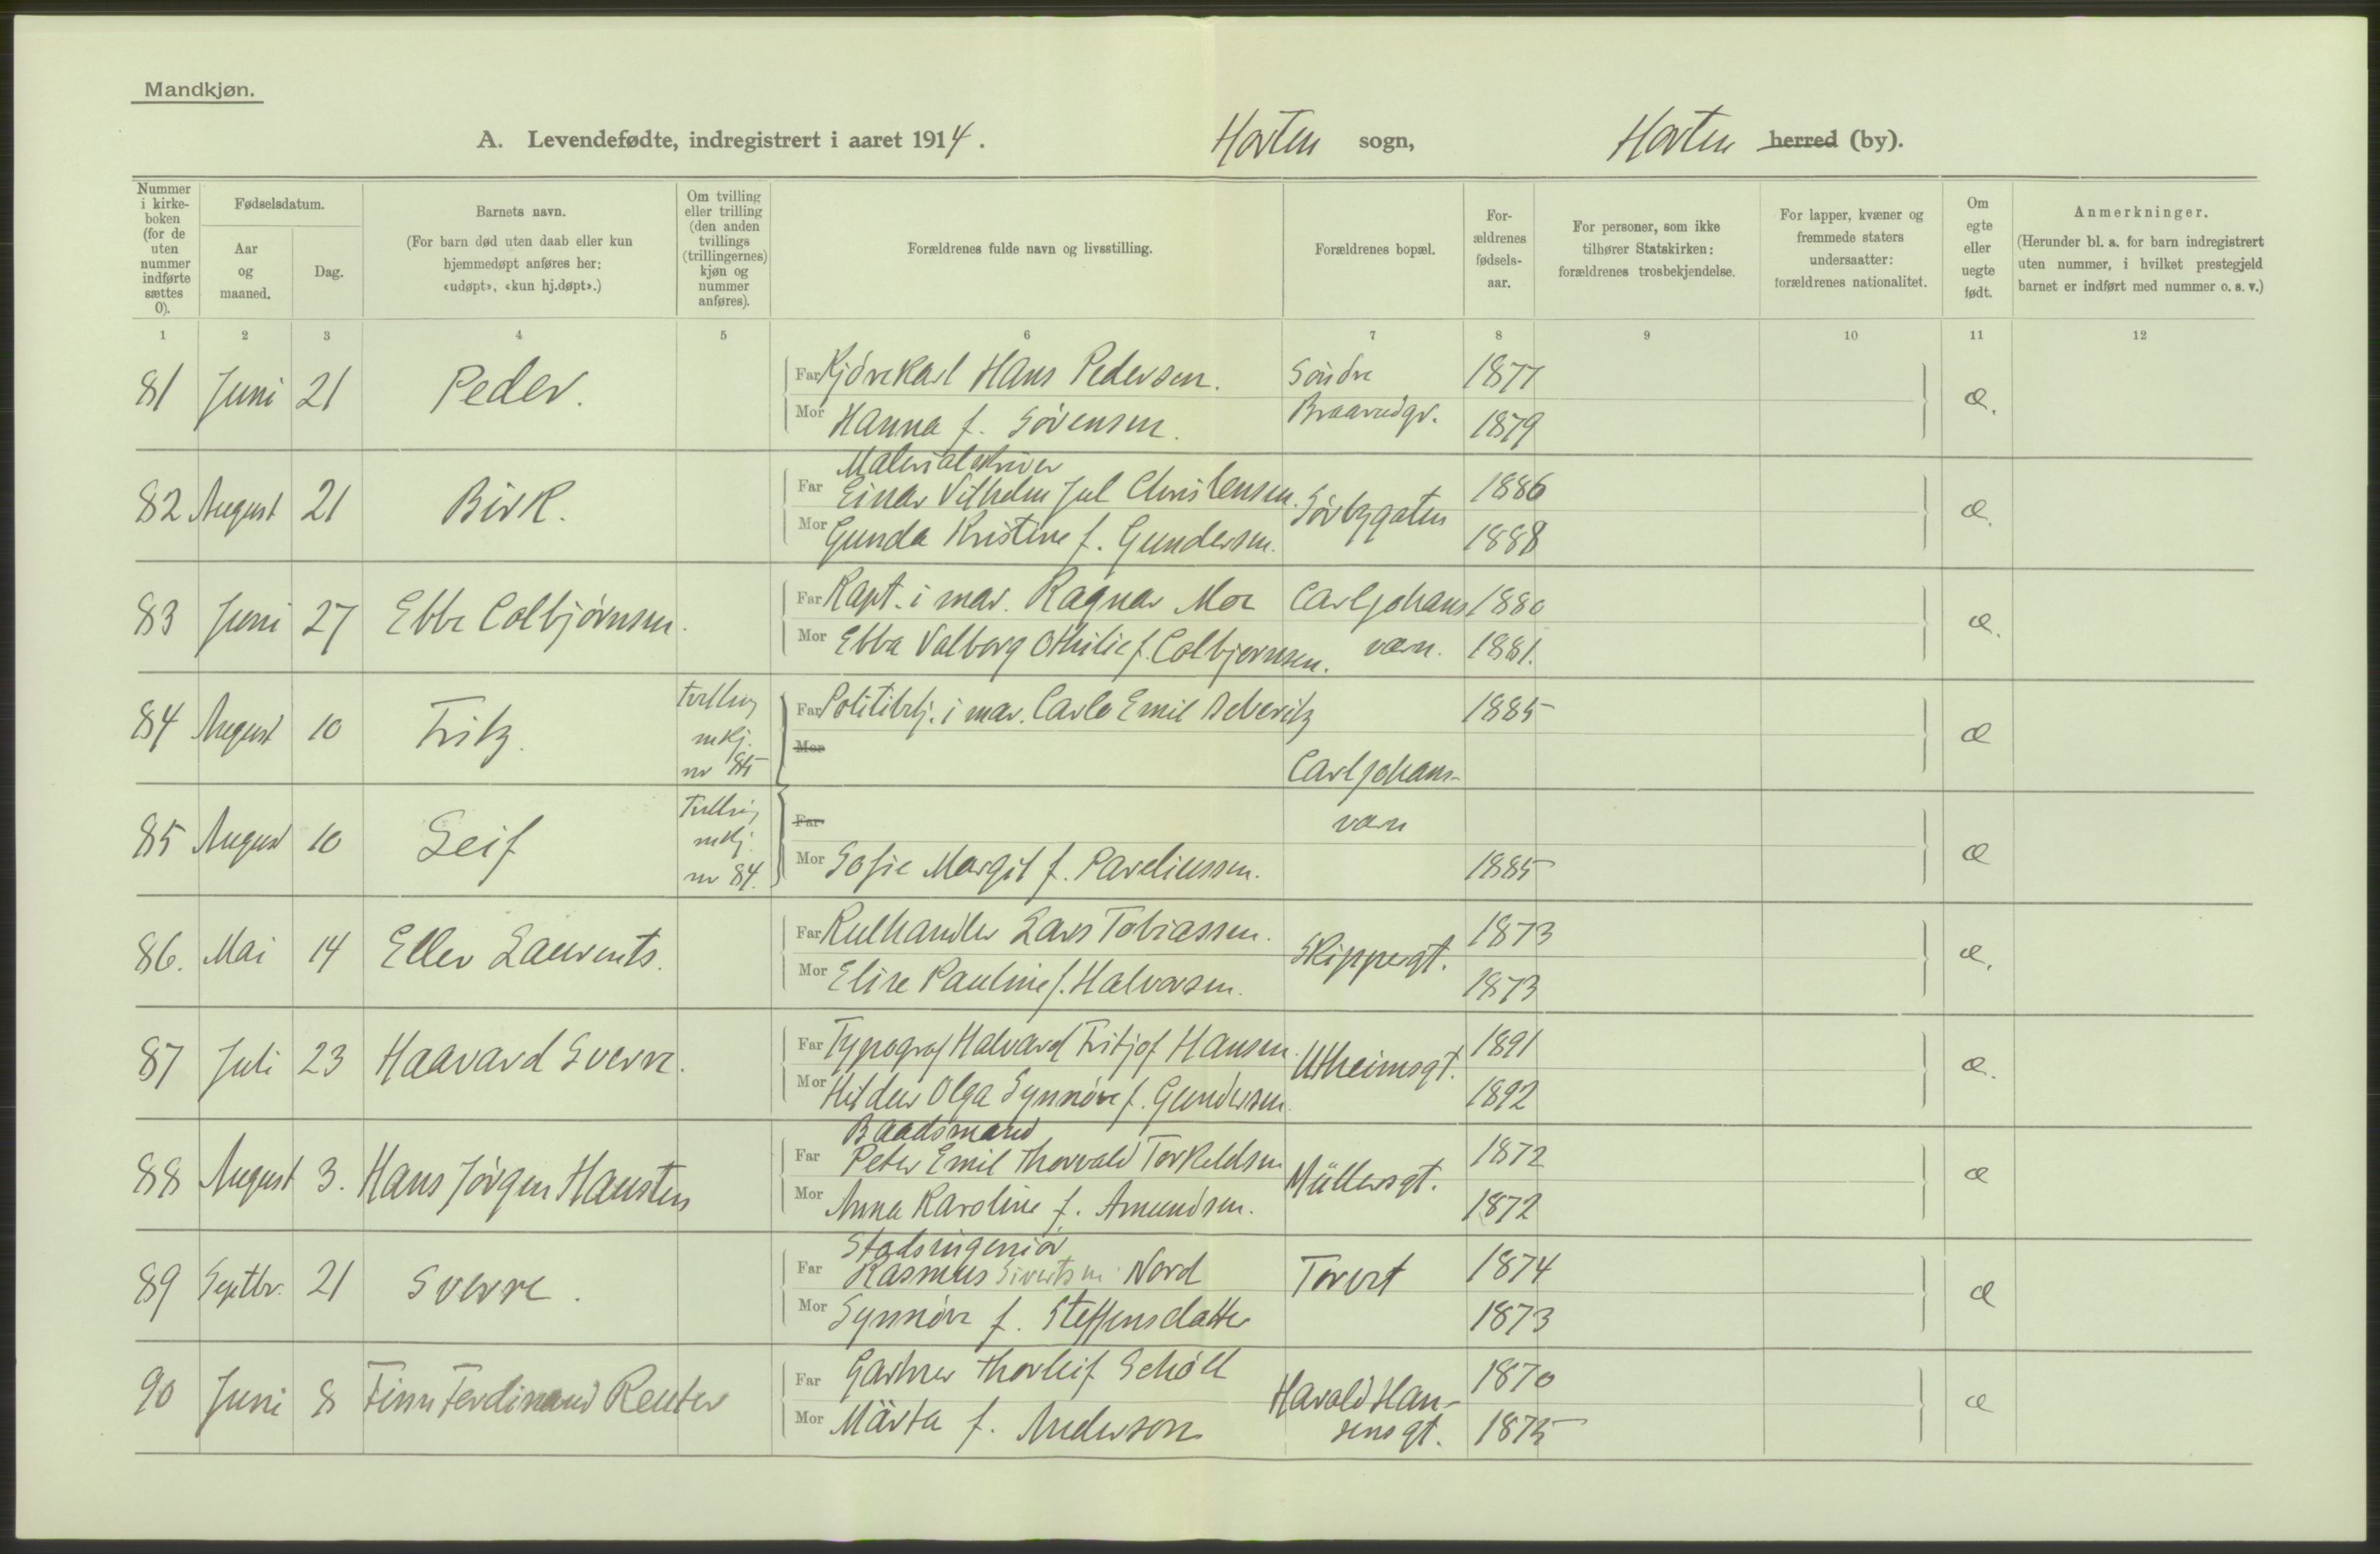 Mandkjøn.
A. Levendefødte, indregistrert i aaret 1914. Horten sogn, Horten herred (by).
Nummer i kirke-boken (for de uten nummer indførte sættes 0).
Fødselsdatum.
Aar og maaned.
Dag.
Barnets navn.
(For barn død uten daab eller kun hjemmedøpt anføres her: «udøpt», «kun hj.døpt».)
Om tvilling eller trilling (den anden tvillings (trillingernes) kjøn og nummer anføres).
Forældrenes fulde navn og livsstilling.
Forældrenes bopæl.
For-ældrenes fødsels-aar.
For personer, som ikke tilhører Statskirken: forældrenes trosbekjendelse.
For lapper, kvæner og fremmede staters undersaatter: forældrenes nationalitet.
Om egte eller uegte født.
Anmerkninger.
(Herunder bl. a. for barn indregistrert uten nummer, i hvilket prestegjeld barnet er indført med nummer o. s. v.)
1 2 3 4 5 6 7 8 9 10 11 12
81 Juni 21 Peder. Far Kjørekarl Hans Pedersen. Søndre 1877 æ.
Mor Hanna f. Sørensen. Braarudgt. 1879
Materialskriver
82 August 21 Birk. Far Einar Vilhelm Jul Christensen. Sørbygaten 1886 æ.
Mor Gunda Kristine f. Gundersen. 1888
83 Juni 27 Ebbe Colbjørnsen. Far Kapt. i mar. Ragnar Moe Carljohans 1880 æ.
Mor Ebba Valborg Othilie f. Colbjørnsen. værn. 1881.
84 August 10 Fritz. tvilling mkj. nr 85 Far Politibtj. i mar. Carlo Emil 1885 æ
Mor Carljohans-
85 August 10 Leif Tvilling mkj. nr 84. Far værn æ
Mor Sofie Margit f. Paveliussen. 1885
86. Mai 14 Eller Laurents. Far Kulhandler Lars Tobiassen. Skippergt. 1873 æ.
Mor Elise Pauline f. Halvorsen. 1873
87 Juli 23 Haavard Sverre. Far Typograf Halvard Fritjof Hansen. Utheimsgt. 1891 æ.
Mor Hildur Olga Synnøve f. Gundersen 1892
Baadsmand
88 August 3. Hans Jørgen Hausten Far Peter Emil Thorvald Torkeldsen Müllersgt. 1872 æ
Mor Anna Karoline f. Amundsen. 1872
Stadsingeniør
89 Septbr. 21 Sverre. Far Rasmus Sivertsen Nord Torvet 1874 æ
Mor Synnøve f. Steffensdatter 1873
90 Juni 8 Finn Ferdinand Reuter Far Gartner Thorleif Schöll Harald Han- 1870 æ
Mor Märta f. Anderson sens gt. 1875